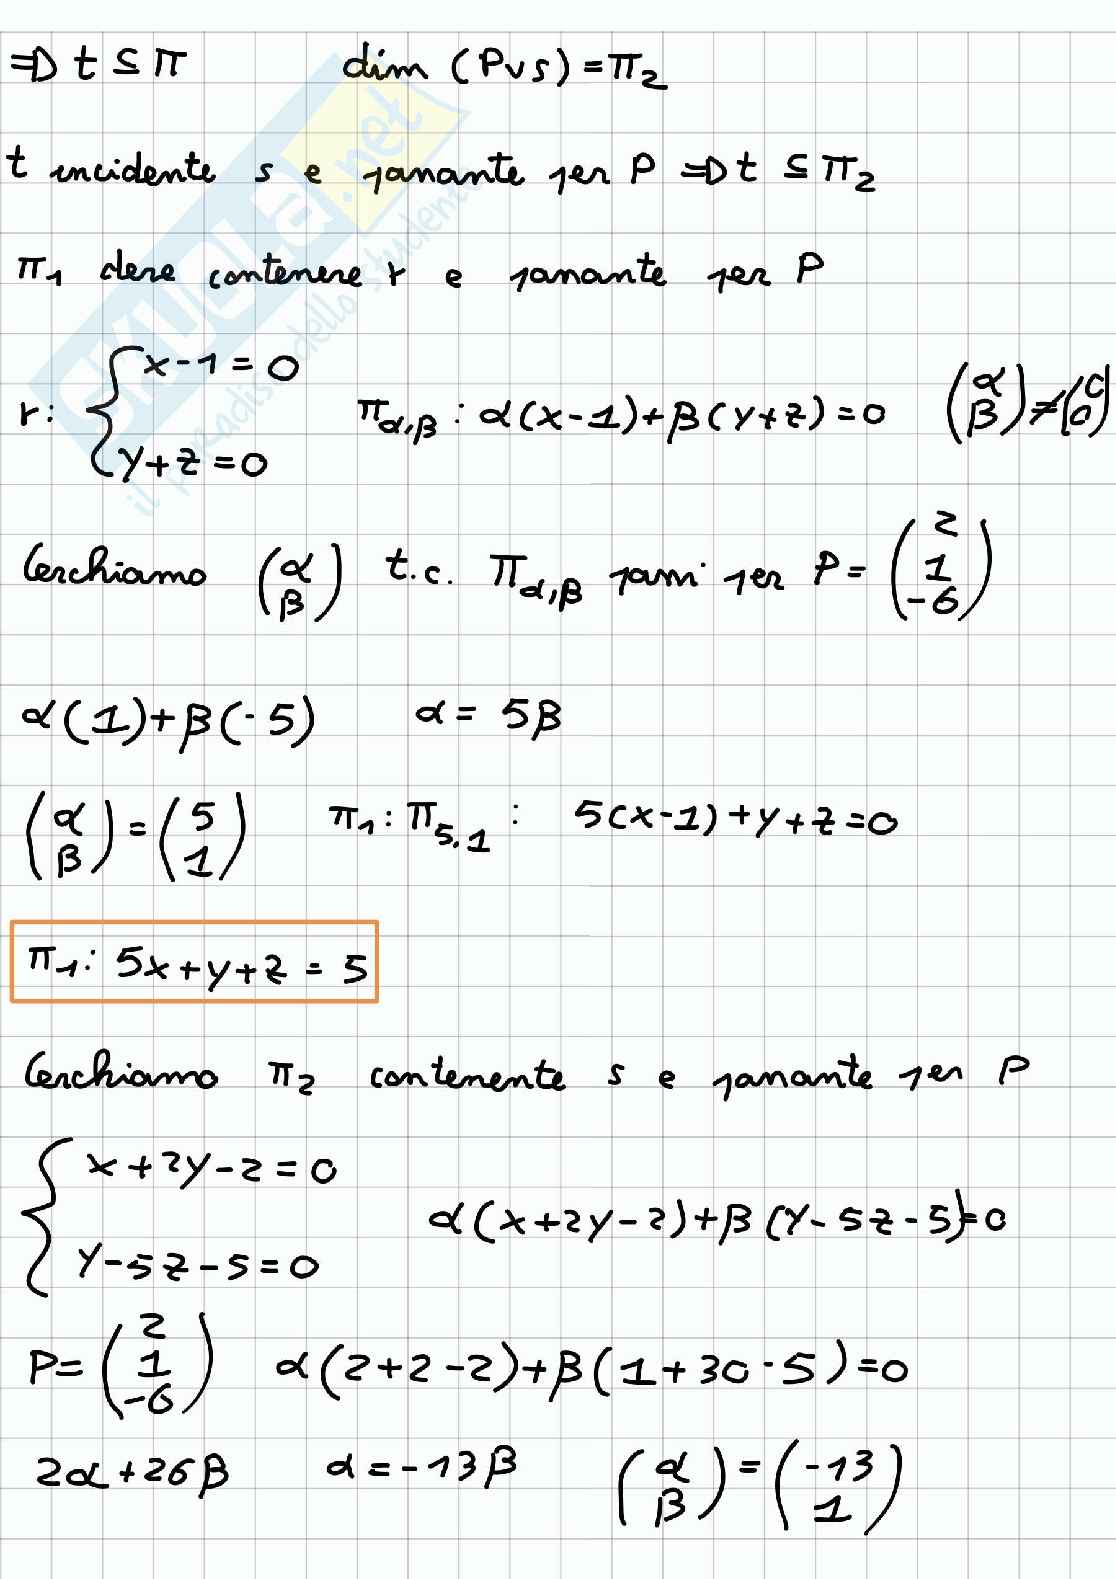 ⇒ t ⊆ π dim (P∨s) = π₂
t incidente s e passante per P ⇒ t ⊆ π₂
π₁ deve contenere r e passante per P
r: { x-1=0 y+z=0 π_α,β : α(x-1)+β(y+z)=0 (α β) ≠ (0 0)
Cerchiamo (α β) t.c. π_α,β passi per P = (2 1 -6)
α(1)+β(-5) α = 5β
(α β) = (5 1) π₁: π_5,1 : 5(x-1)+y+z=0
π₁: 5x+y+z = 5
Cerchiamo π₂ contenente s e passante per P
{ x+2y-2=0 y-5z-5=0 α(x+2y-2)+β(y-5z-5)=0
P= (2 1 -6) α(2+2-2)+β(1+30-5)=0
2α+26β α=-13β (α β) = (-13 1)
SKUOLA.net
il paradiso dello studente